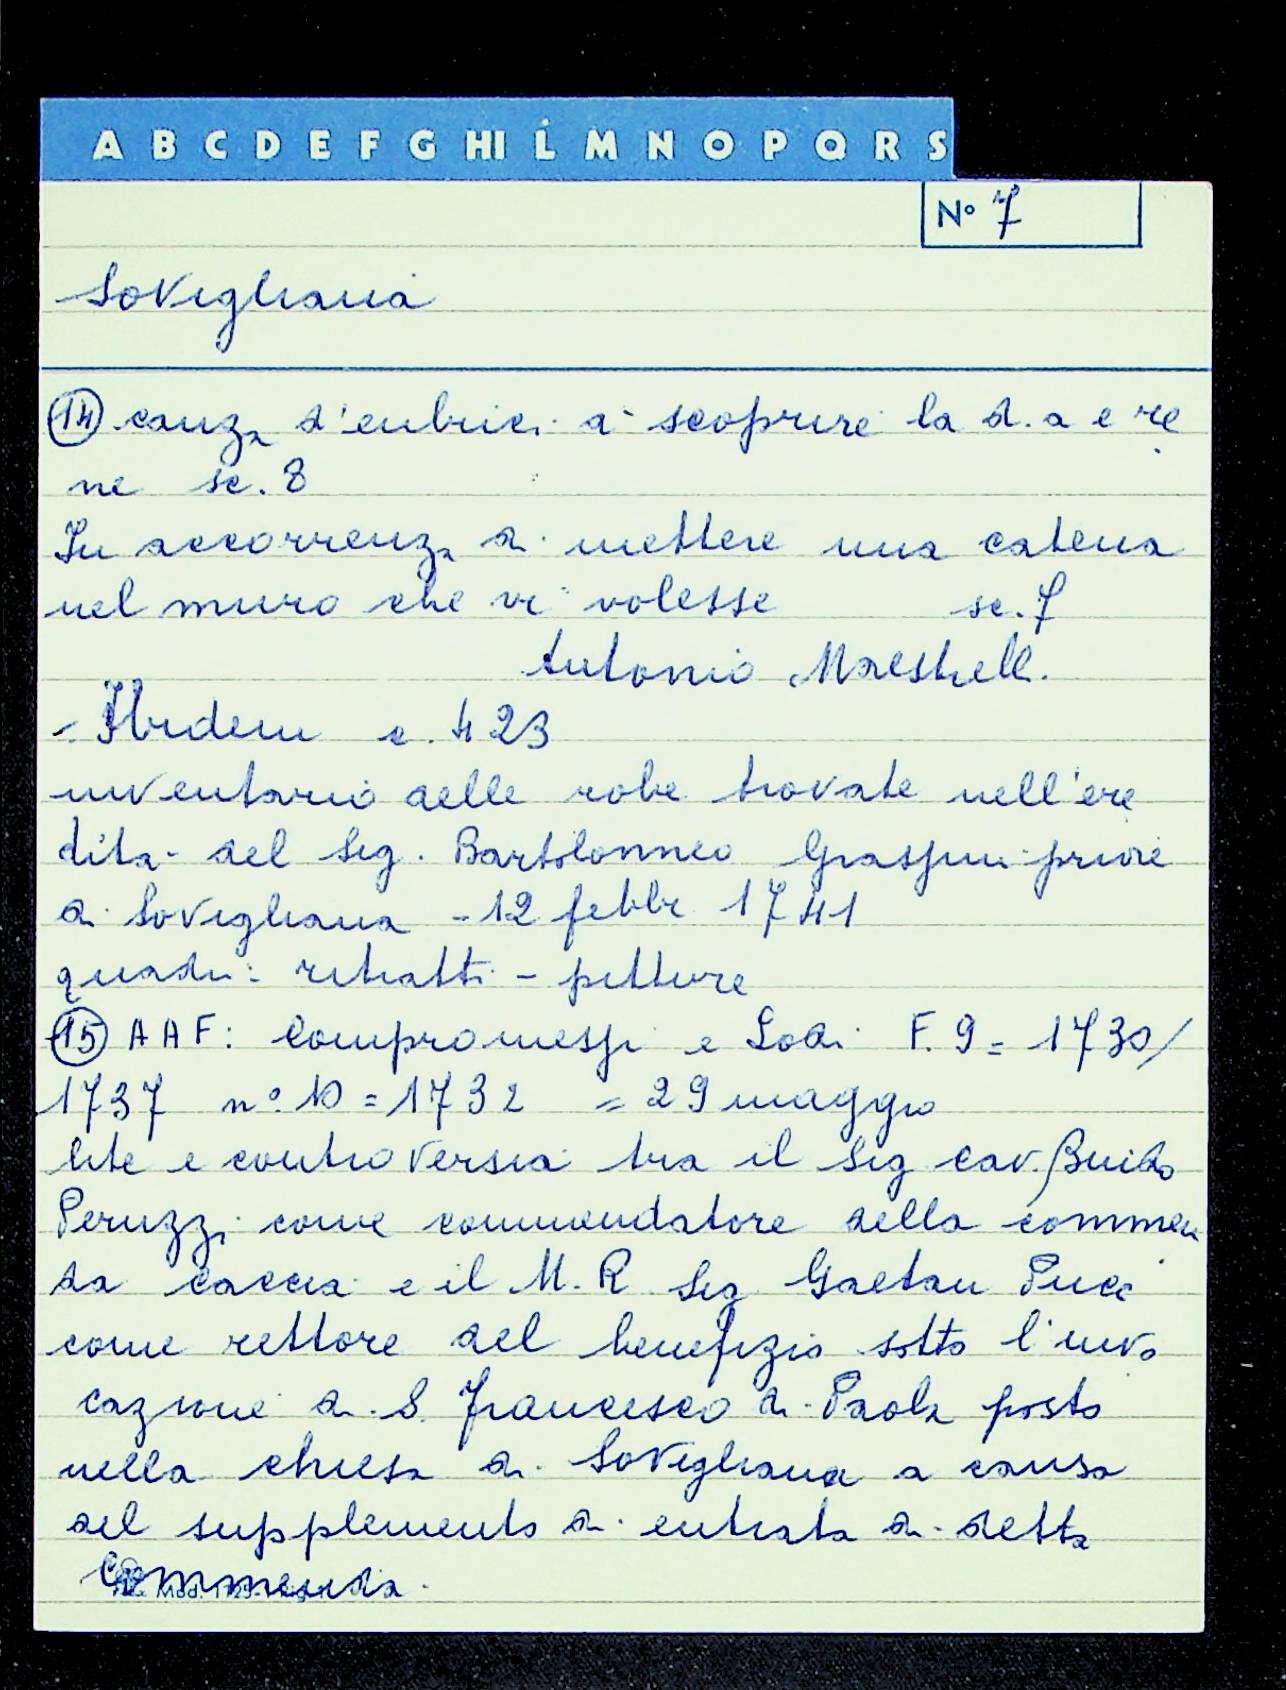 A B C D E F G HI L M N O P Q R S
No 7
Sovigliana
14 canza d'enbrici a scoprire la d. a e re
ne sc. 8
In accorrenza di mettere una catena
nel muro che vi volesse sc. 7
Antonio Maestrell.
- Ibidem c. 423
inventario delle robe trovate nell'ere
dità del Sig. Bartolonneo Graspini priore
di Sovigliana - 12 febbr 1741
quadri: ritratti - pitture
15 AAF: Compromessi e Lodi F. 9 = 1730/
1737 n°. 10 = 1732 = 29 maggio
lite e controversia tra il Sig cav. Guido
Peruzzi come commendatore della commen
da Caccia e il M. R Sig Gaetan Pucci
come rettore del benefizio sotto l'invo
cazione di S. Francesco di Paola posto
nella chiesa di Sovigliana a causa
del supplemento di entrata di detta
Commenda.